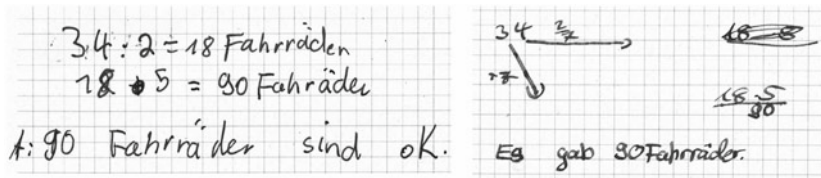 34 : 2 = 18 Fahrräder
18 • 5 = 90 Fahräder
A: 90 Fahrräder sind oK.
34
18 5
90
Es gab 90 Fahrräder.